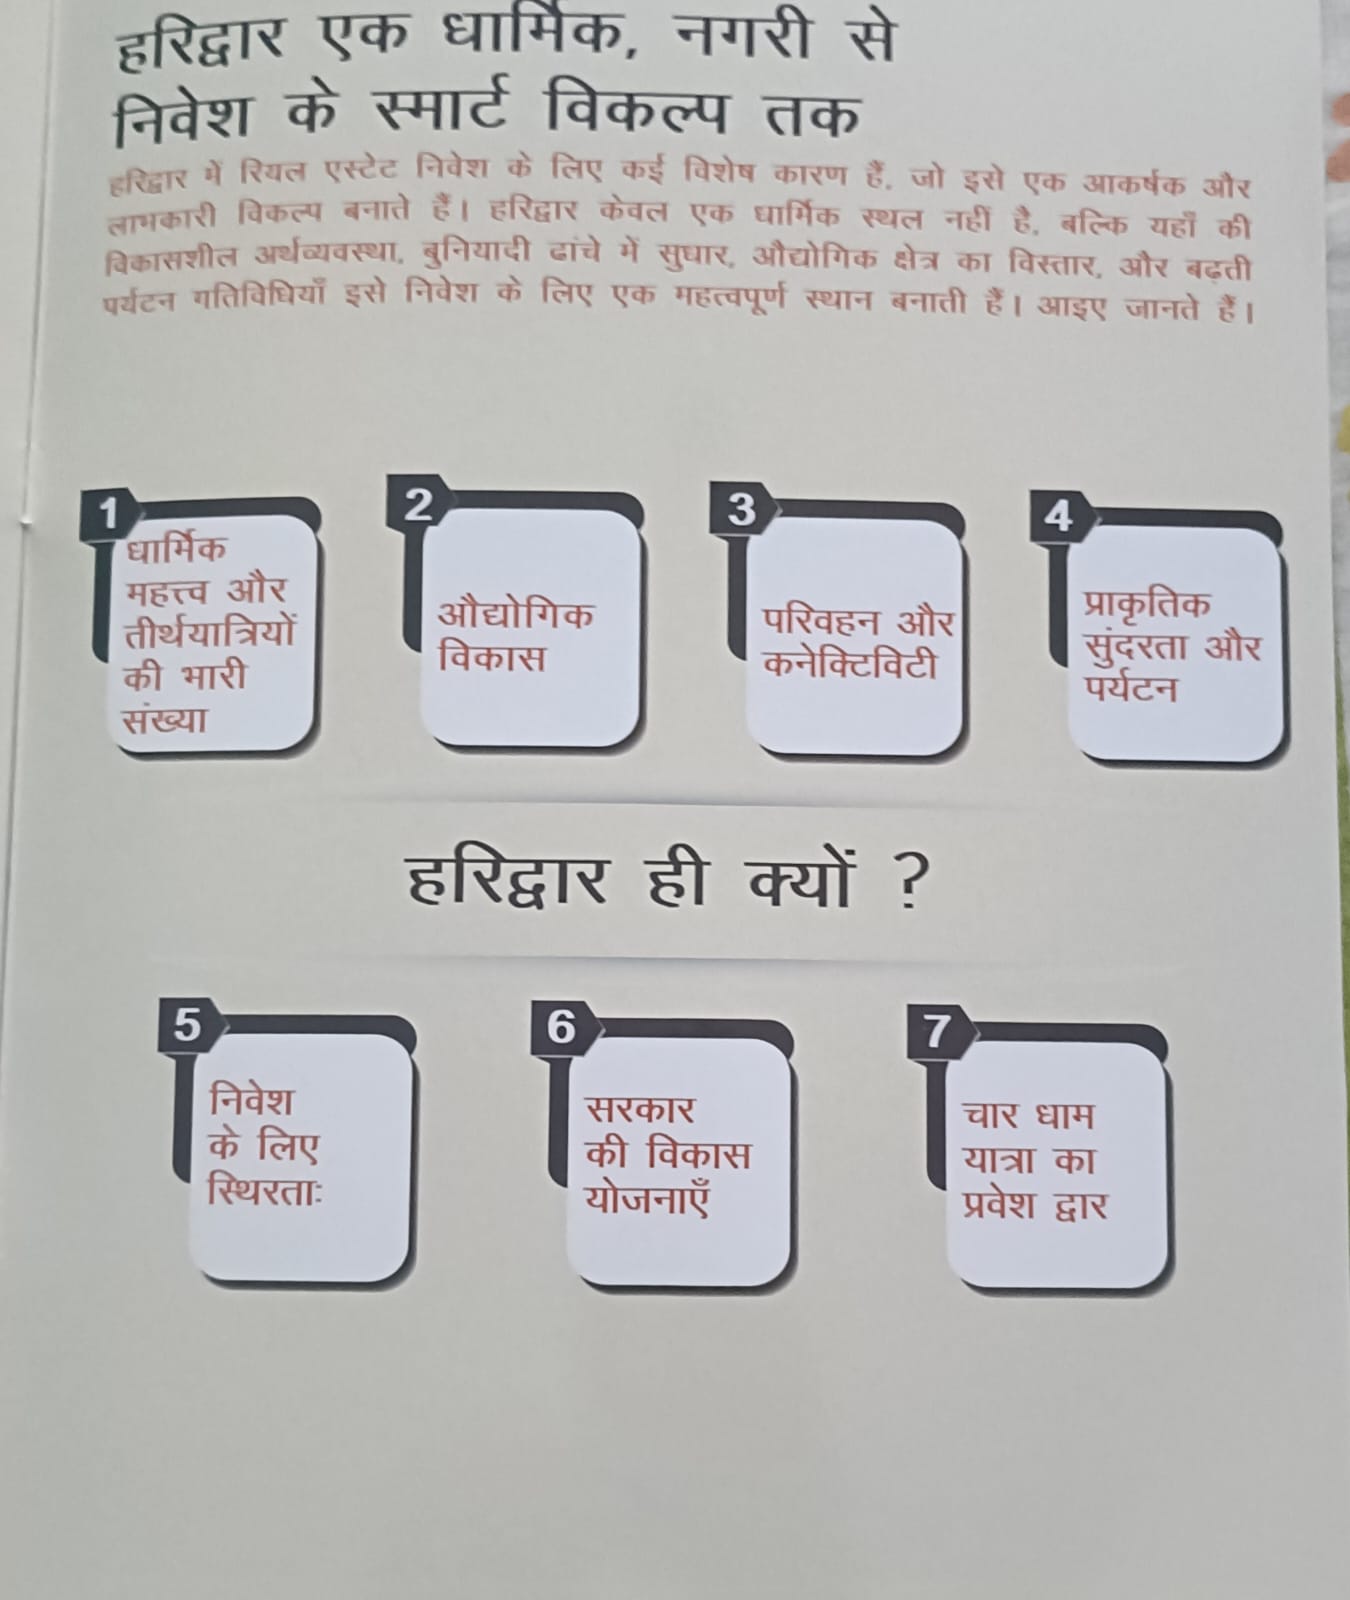 हरिद्वार एक धार्मिक, नगरी से
निवेश के स्मार्ट विकल्प तक
हरिद्वार में रियल एस्टेट निवेश के लिए कई विशेष कारण हैं, जो इसे एक आकर्षक और
लाभकारी विकल्प बनाते हैं। हरिद्वार केवल एक धार्मिक स्थल नहीं है, बल्कि यहाँ की
विकासशील अर्थव्यवस्था, बुनियादी ढांचे में सुधार, औद्योगिक क्षेत्र का विस्तार, और बढ़ती
पर्यटन गतिविधियाँ इसे निवेश के लिए एक महत्वपूर्ण स्थान बनाती हैं। आइए जानते हैं।
1
धार्मिक
महत्त्व और
तीर्थयात्रियों
की भारी
संख्या
2
औद्योगिक
विकास
3
परिवहन और
कनेक्टिविटी
4
प्राकृतिक
सुंदरता और
पर्यटन
हरिद्वार ही क्यों ?
5
निवेश
के लिए
स्थिरताः
6
सरकार
की विकास
योजनाएँ
7
चार धाम
यात्रा का
प्रवेश द्वार